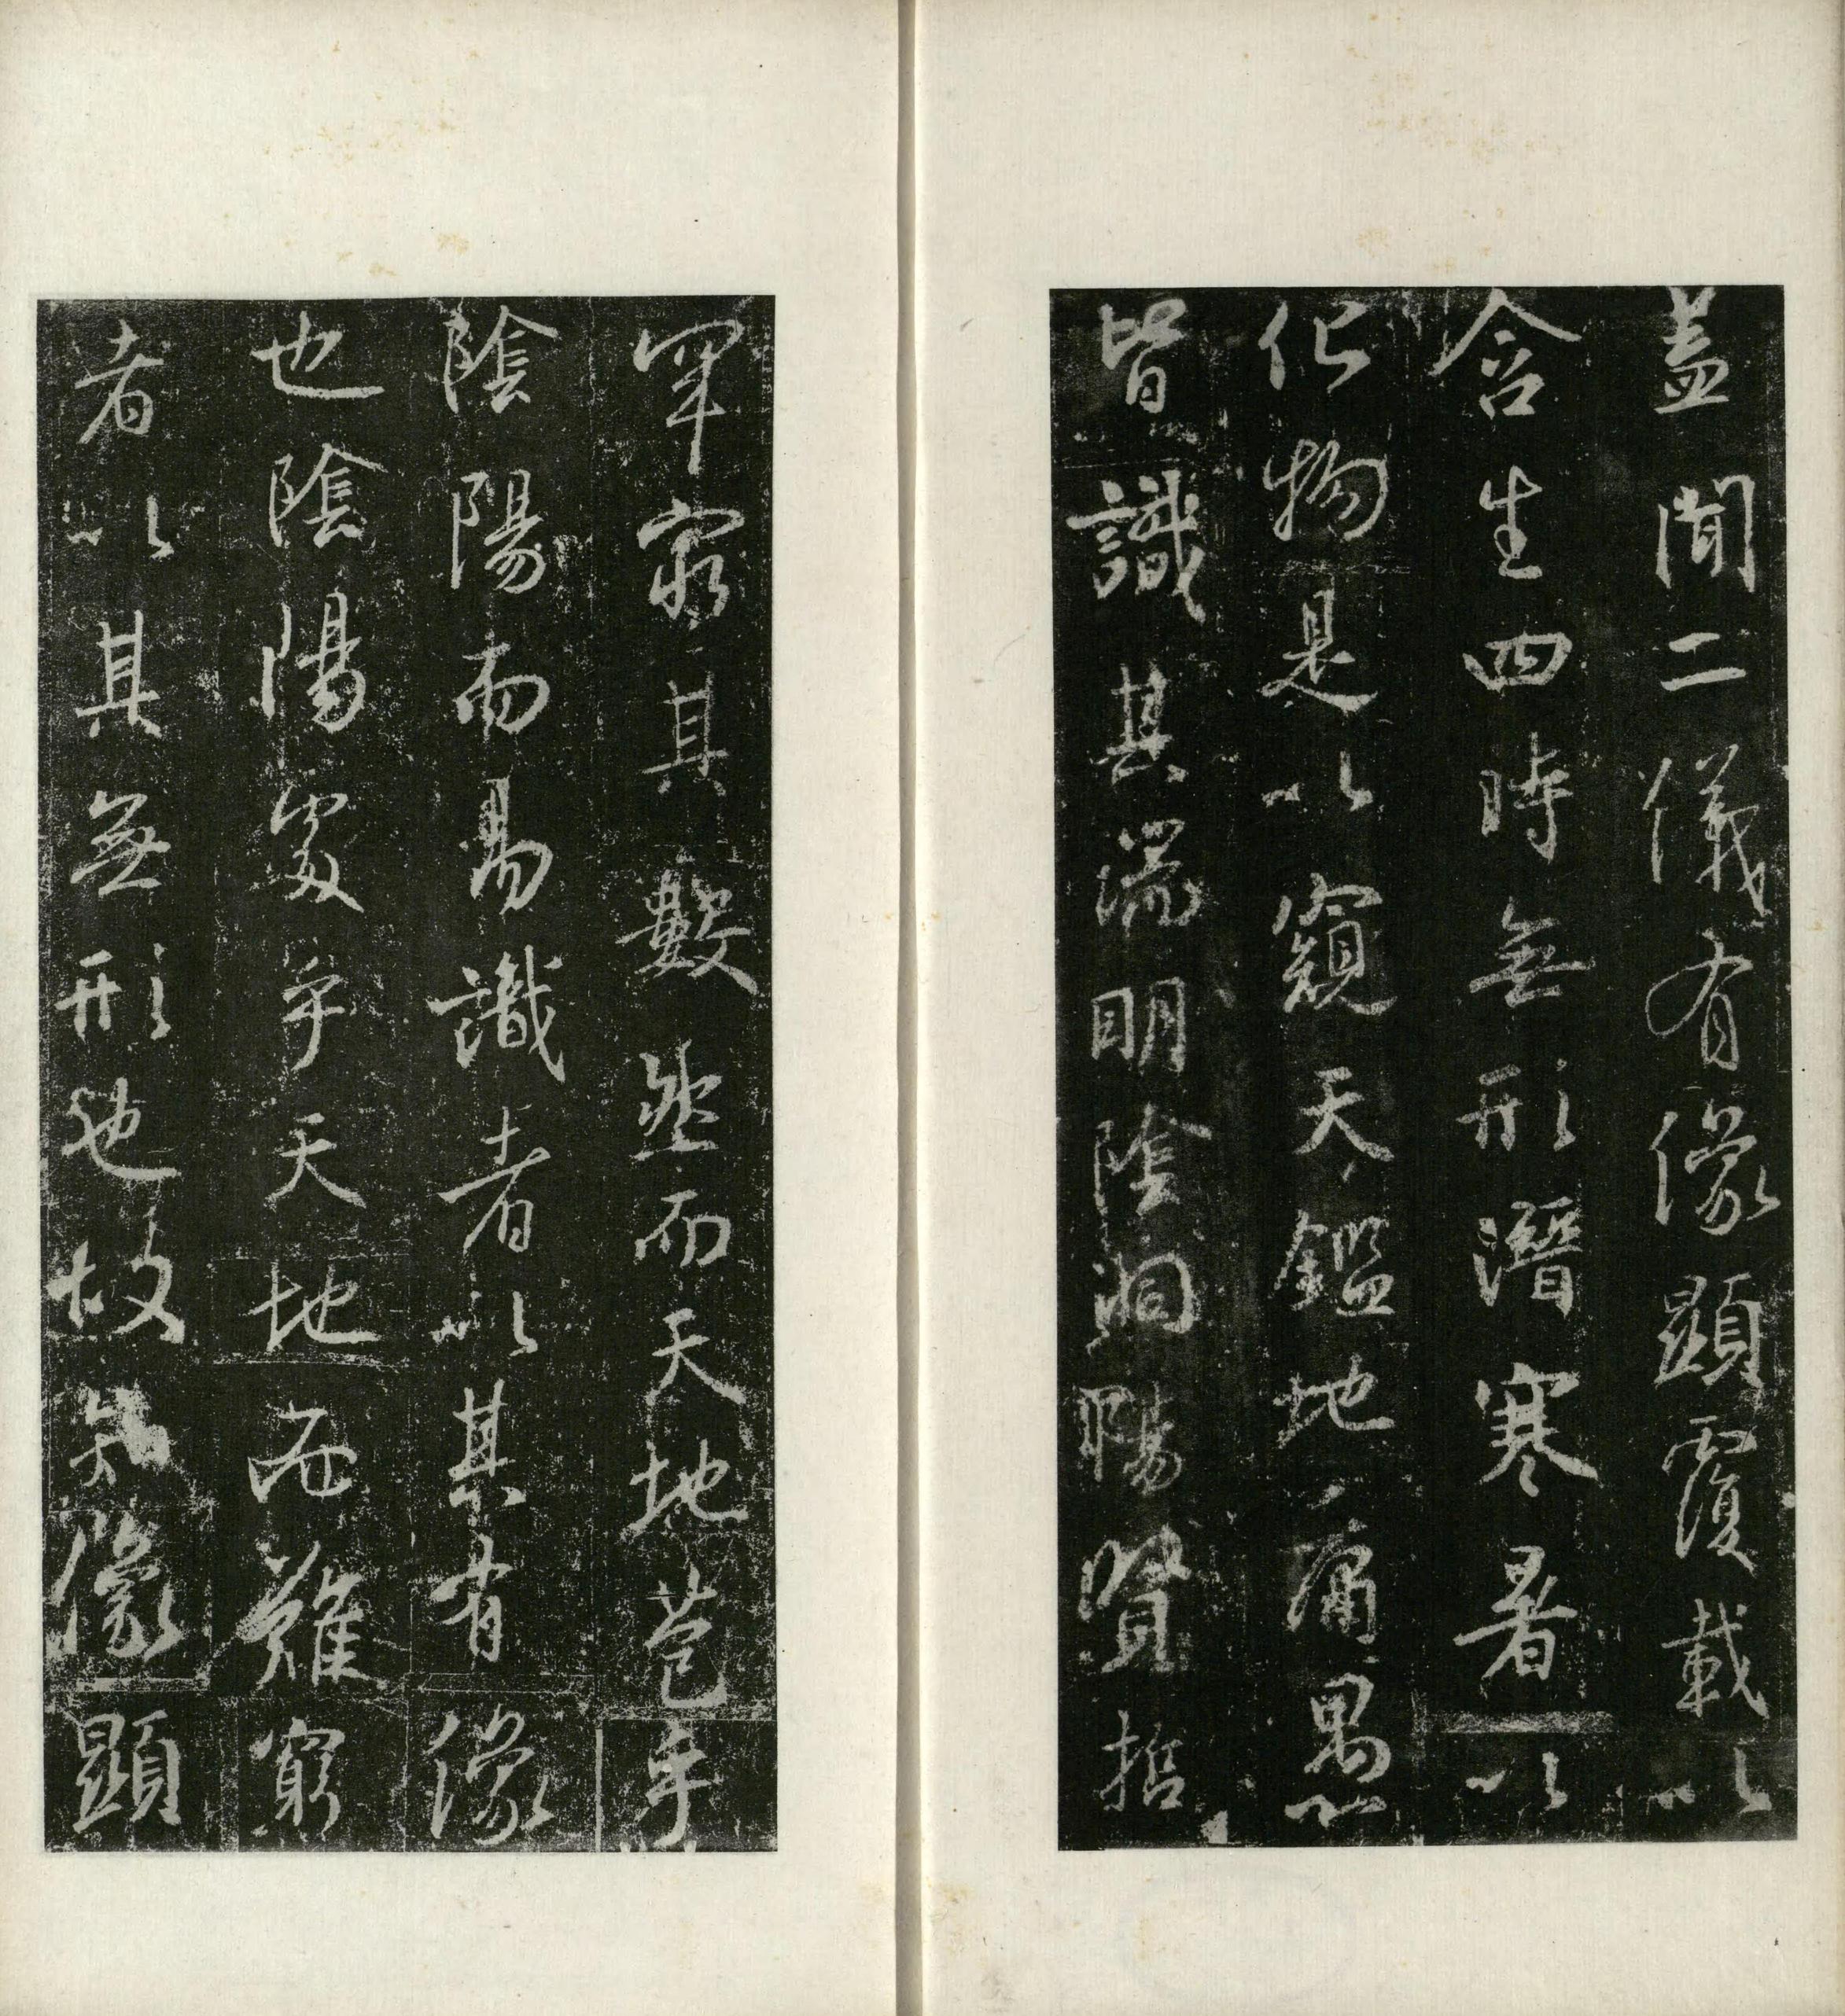 蓋聞二儀有像顯覆載以
含生四時無形潛寒暑以
化物是以窺天鑑地庸愚
皆識其端明陰洞陽賢哲
罕窮其數然而天地苞乎
陰陽而易識者以其有像
也陰陽處乎天地而難窮
者以其無形也故知像顯